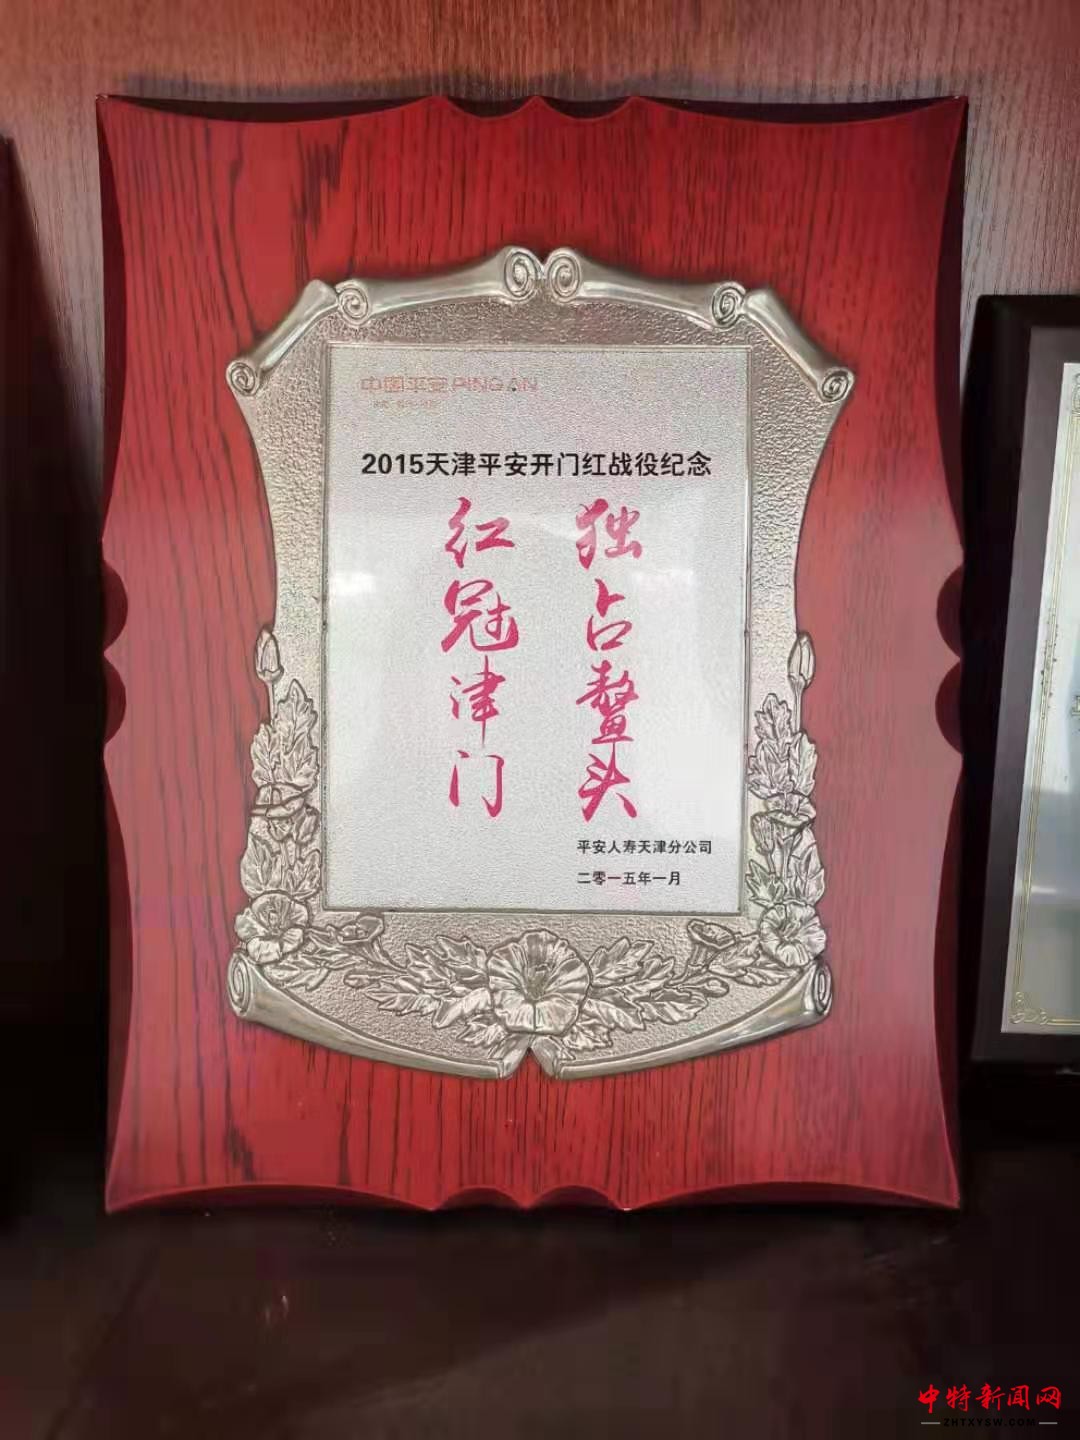 中国平安 PING AN
2015天津平安开门红战役纪念
独占鳌头
红冠津门
平安人寿天津分公司
二零一五年一月
中特新闻网
ZHTXYSW.COM